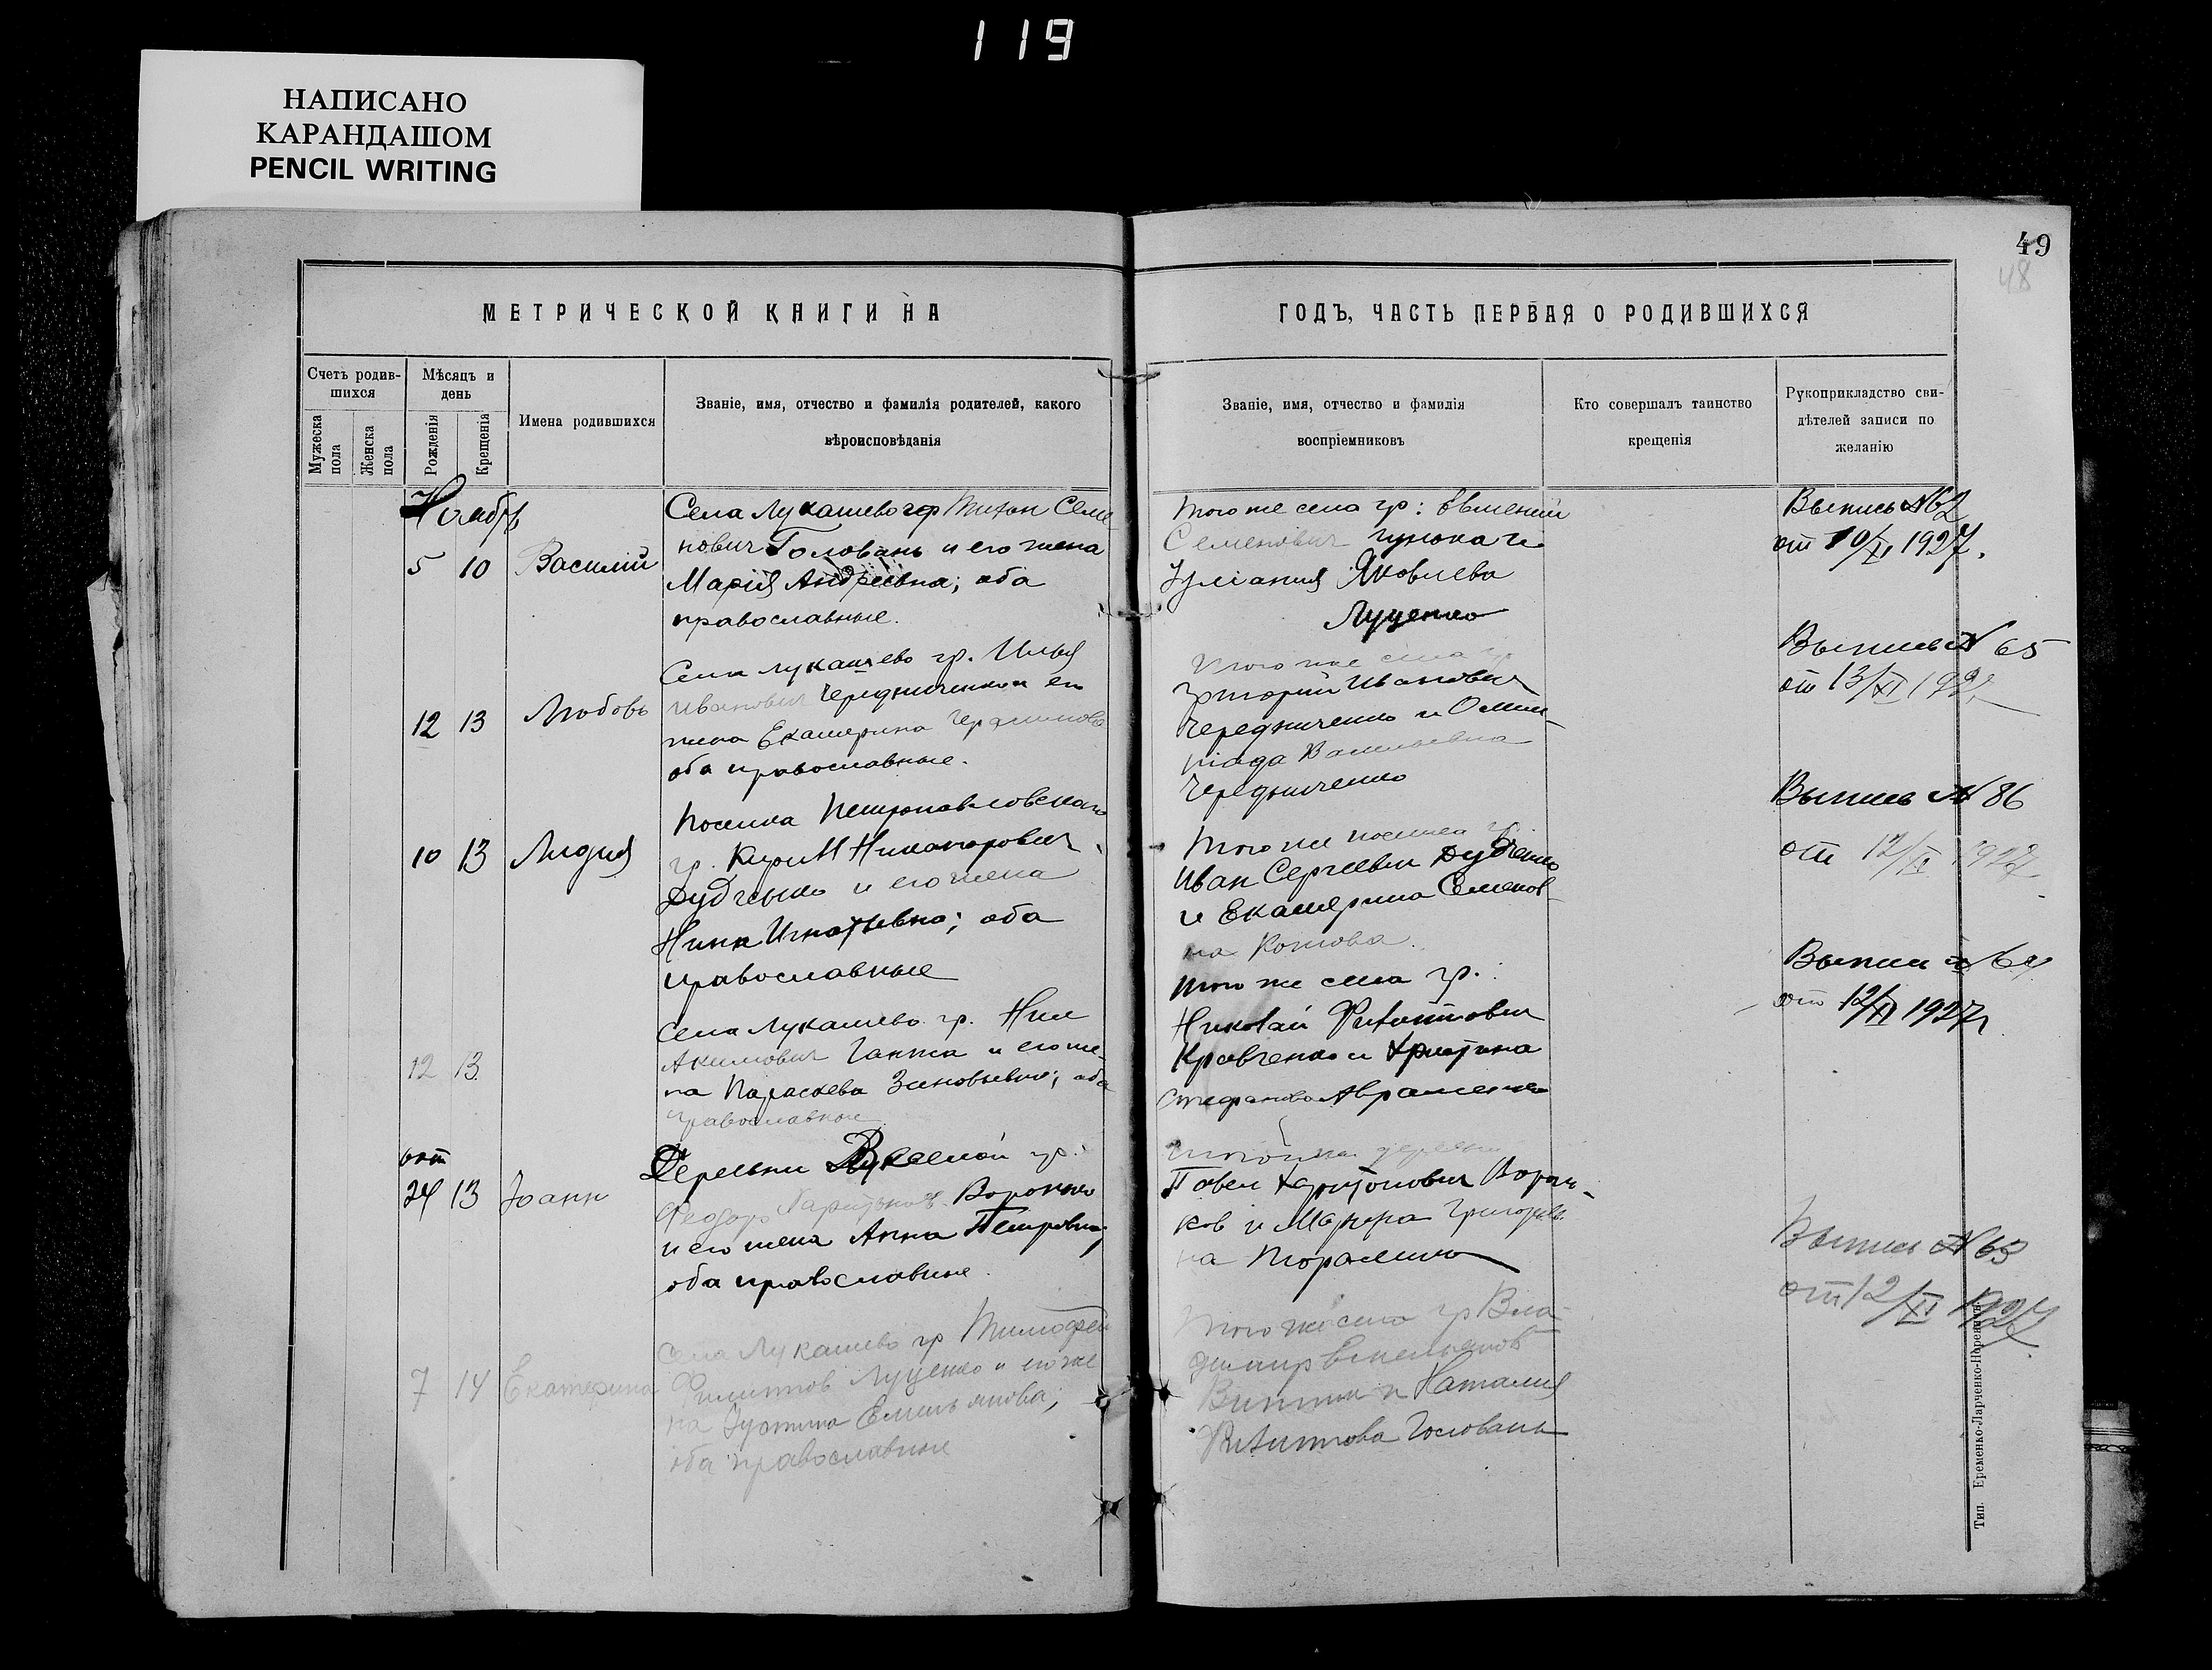 119
НАПИСАНО
КАРАНДАШОМ
PENCIL WRITING
49
48
МЕТРИЧЕСКОЙ КНИГИ НА
ГОДЪ, ЧАСТЬ ПЕРВАЯ О РОДИВШИХСЯ
Счетъ родив-
шихся
Мужеска
пола
Женска
пола
Мѣсяцъ и
день
Рожденія
Крещенія
Имена родившихся
Званіе, имя, отчество и фамилія родителей, какого
вѣроисповѣданія
Званіе, имя, отчество и фамилія
воспріемниковъ
Кто совершалъ таинство
крещенія
Рукоприкладство сви-
дѣтелей записи по
желанію
Ноябрь
5 10 Василий
Села Лукашево гр Тихон Семе
нович Головань и его жена
Мария Андреевна; оба
православные.
того же села гр: Евгений
Семенович
Яковлева
Луценко
Выпись № 62
от 10/XI 1927.
12 13 Любовь
Села Лукашево гр. Илья
Иванович Чередниченко и его
жена Екатерина Герасимова
оба православные.
того же села гр
Григорий Иванович
Чередниченко и Олим-
піада Васильевна
Чередниченко
Выпись № 65
от 13/XI 192
10 13 Лидия
Поселка Петропавловского
гр. Кирилл Никанорович
Дудченко и его жена
Нина Игнатьевна; оба
православные
того же поселка гр
Иван Сергеевич Дудченко
и Екатерина Семенов-
на Котова.
Выпись № 86
от 12/XI 1927
12 13
Села Лукашево гр. Нил
Акимович Ганжа и его же-
на Параскева Зиновьевна; оба
православные
того же села гр.
Николай Филиппович
Кравченко и Христина
Стефановна Авраменко
Выписи № 64
от 12/XI 1927
окт
24 13 Іоанн
Деревни гр.
Феодор Харитонов. Воронко
и его жена Анна Петровна;
оба православные.
деревни
Павел Харитонович Ворон-
ков и Марфа Григорьев
на
Выпись № 63
от 12/XI 1927
7 14 Екатерина
Села Лукашево гр Тимофей
Филиппов Луценко и его же
на Іустина Емельянова;
оба православные
того же села гр Вла-
димир Емельянов
и Наталия
Филиппова Головань
Тип. Еременко-Ларченко-Норенскъ